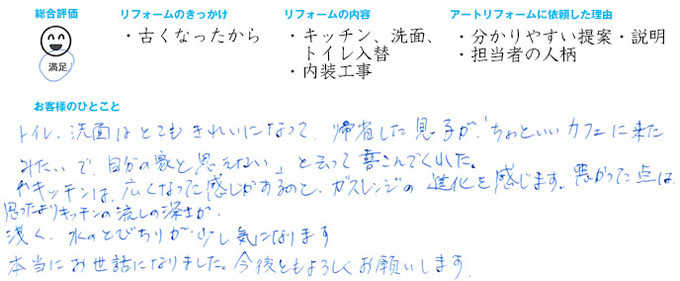 総合評価
満足
リフォームのきっかけ
・古くなったから
リフォームの内容
・キッチン、洗面、
トイレ入替
・内装工事
アートリフォームに依頼した理由
・分かりやすい提案・説明
・担当者の人柄
お客様のひとこと
トイレ、洗面はとてもきれいになって、帰省した息子が、「ちょっといいカフェに来た
みたいで、自分の家と思えない」と云って喜こんでくれた。
キッチンは、広くなった感じがあるのと、ガスレンジの進化を感じます。悪かった点は、
思ったよりキッチンの流しの深さが、
浅く、水のとびちりが少し気になります
本当にお世話になりました。今後ともよろしくお願いします。